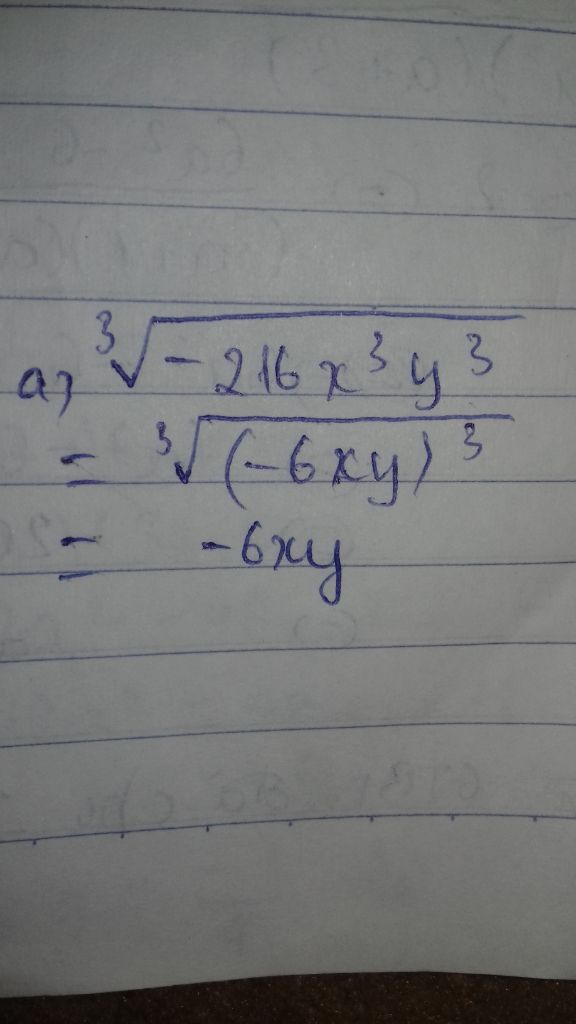 a, ∛(-216x³y³)
= ∛((-6xy)³)
= -6xy